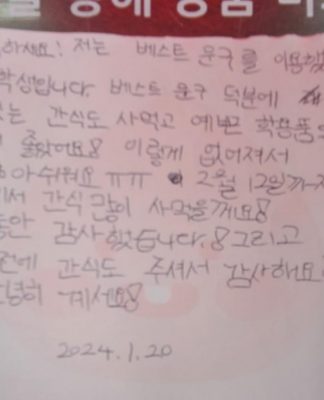 하세요! 저는 베스트 문구를 이용했
학생입니다. 베스트 문구 덕분에
는 간식도 사먹고 예쁜 학용품
좋았어요! 이렇게 없어져서
아쉬워요 ㅠㅠ 2월 12일까지
서 간식 많이 사먹을께요!
동안 감사했습니다.! 그리고
전에 간식도 주셔서 감사해요
녕히 계세요!
2024.1.20